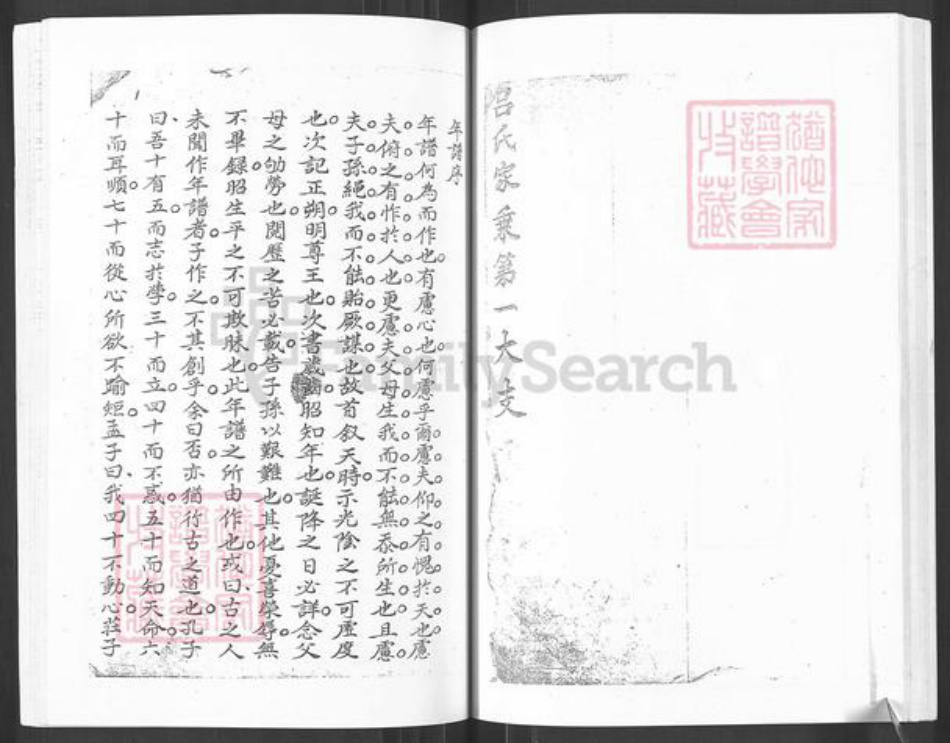 呂氏家乘第一大支
猶他家
譜學會
收藏
年譜序
年譜何為而作也有慮心也何慮乎爾慮夫仰之有愧於天也慮
夫俯之有怍於人也更慮夫父母生我而不能無忝所生也且慮
夫子孫繩我而不能貽厥謀也故首叙天時示光陰之不可虛度
也次記正朔明尊王也次書歲齒昭知年也誕降之日必詳念父
母之劬勞也閱歷之苦必載告子孫以艱難也其他憂喜榮辱無
不畢錄昭生平之不可欺昧也此年譜之所由作也或曰古之人
未聞作年譜者子作之不其創乎余曰否亦猶行古之道也孔子
曰吾十有五而志於學三十而立四十而不惑五十而知天命六
十而耳順七十而從心所欲不踰矩孟子曰我四十不動心莊子
猶他家
譜學會
收藏
FamilySearch